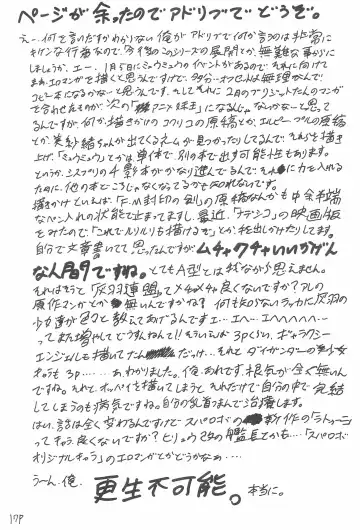 ページが余ったのでアドリブでどうぞ。
えー、何を言いだすかわからない俺がアドリブで何か言うのは非常に
キケンな行為なので、今後のこのシリーズの展開とか、無難な事がいに
しましょうか。エー、1月5日にミュウミュウのイベントがあるので、それに向けて
まあ、エロマンガを描くと思うんですけど、多分、オフセットは無理なんで
コピー本になるかなーと思うんです。そしてそれに2月のプリンセットたんのマンガ
を合わせたものが、次の「アニメ緑玉」になるんじゃないかなーと思って
るんですが、何しか、描きかけのコクリコの原稿とか、エルピー・プルの原稿
とか、美紗緒ちゃんが出てくるネームが見つかったりしてるんで、それらを描き
上げ、「ミュウミュウ」とかは単体で別の本で出す可能性もあります。
というか、シスプリの4影本がかなり進んでるんで、それに力を入れる
ために、他の本どころじゃなくなってるかも知れないです。
描きかけといえば、「F.M封印の剣」の原稿なんかも中途半端
なペン入れの状態で止まってますし、最近、「ナデシコ」の映画版
をみたので、「これでルリルリも描けるぞ」とか、吐出かけたりします。
自分で文章書いてて思ったんですが、ムチャクチャいいかげん
な人間ですね。とてもA型とは我ながら思えません。
それはそうと「灰羽連盟」ってメチャメチャ良くないですか?アレの
原作マンガとか無いんですかね?何も知らないラッカに灰羽の
少女達が色々教えてあげるんですエ…エヘ…エヘヘヘヘヘ…
って、また増やしてどうすんねん!!そういえば3pくらい、ギャラクシー
エンジェルも描いてたんだっけ…それと、ダイガンダーの美少女
キャラも3P……。あ、わかりました。俺、あれです。根気が全く無いん
ですね。それと、オッパイを描いてしまうと、それだけで自分の中で完結
してしまうのも病気ですね。自分の乳首つまんで治療します。
はい、話は全く変わるんですけど、スパロボの新作の「ラトゥーニ」
ってキャラ良くないですか?ヒリュウ改の艦長とかも…。「スパロボ
オリジナルキャラ」のエロマンガとかどうかなぁ…。
うーん、俺、更生不可能。本当に。
17P